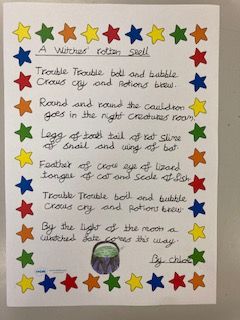 A Witches' rotten Spell
Trouble Trouble boil and bubble
Crows cry and Potions brew.
Round and round the cauldron
goes in the right creatures room.
Legg of toad tail of rat Slime
of snail and wing of bat.
Feather of crow eye of lizard
tongue of cat and scale of fish
Trouble Trouble boil and bubble
Crows cry and Potions brew
By the light of the moon a
wretched fate comes this way.
By Chloe